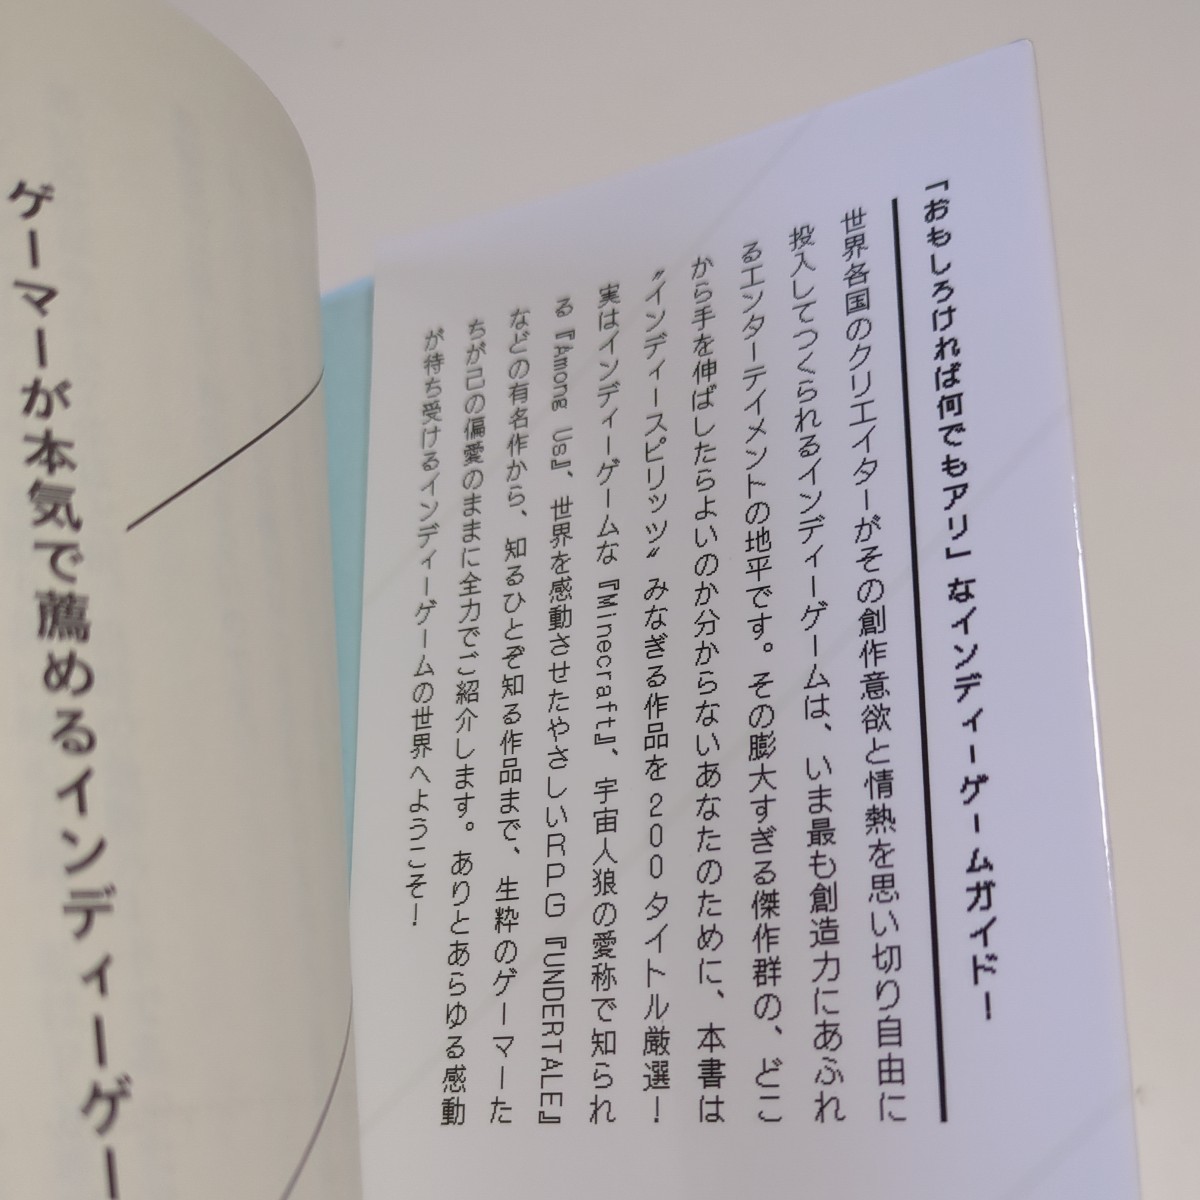 「おもしろければ何でもアリ」なインディーゲームガイド！
世界各国のクリエイターがその創作意欲と情熱を思い切り自由に
投入してつくられるインディーゲームは、いま最も創造力にあふれ
るエンターテイメントの地平です。その膨大すぎる傑作群の、どこ
から手を伸ばしたらよいのか分からないあなたのために、本書は
〝インディースピリッツ〟みなぎる作品を200タイトル厳選！
実はインディーゲームな『Minecraft』、宇宙人狼の愛称で知られ
る『Among Us』、世界を感動させたやさしいRPG『UNDERTALE』
などの有名作から、知るひとぞ知る作品まで、生粋のゲーマーた
ちが己の偏愛のままに全力でご紹介します。ありとあらゆる感動
が待ち受けるインディーゲームの世界へようこそ！
ゲーマーが本気で薦めるインディーゲー